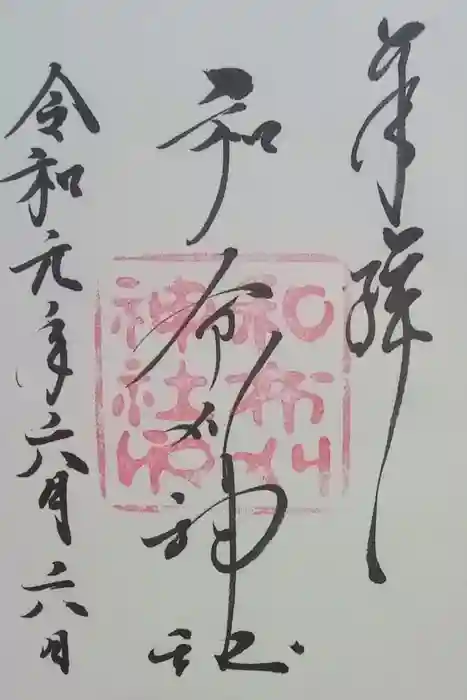 奉拝
和布刈神社
和布刈
神社印
令和元年六月六日